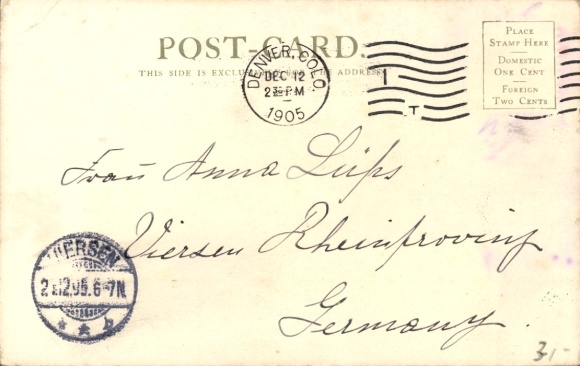 POST-CARD.
THIS SIDE IS EXCLUSIVELY FOR THE ADDRESS
DENVER, COLO.
DEC 12
2 PM
1905
T
PLACE
STAMP HERE
DOMESTIC
ONE CENT
FOREIGN
TWO CENTS
Frau Anna Lüps
Viersen Rheinprovinz
Germany.
VIERSEN
12.05.6-7N.
* * b